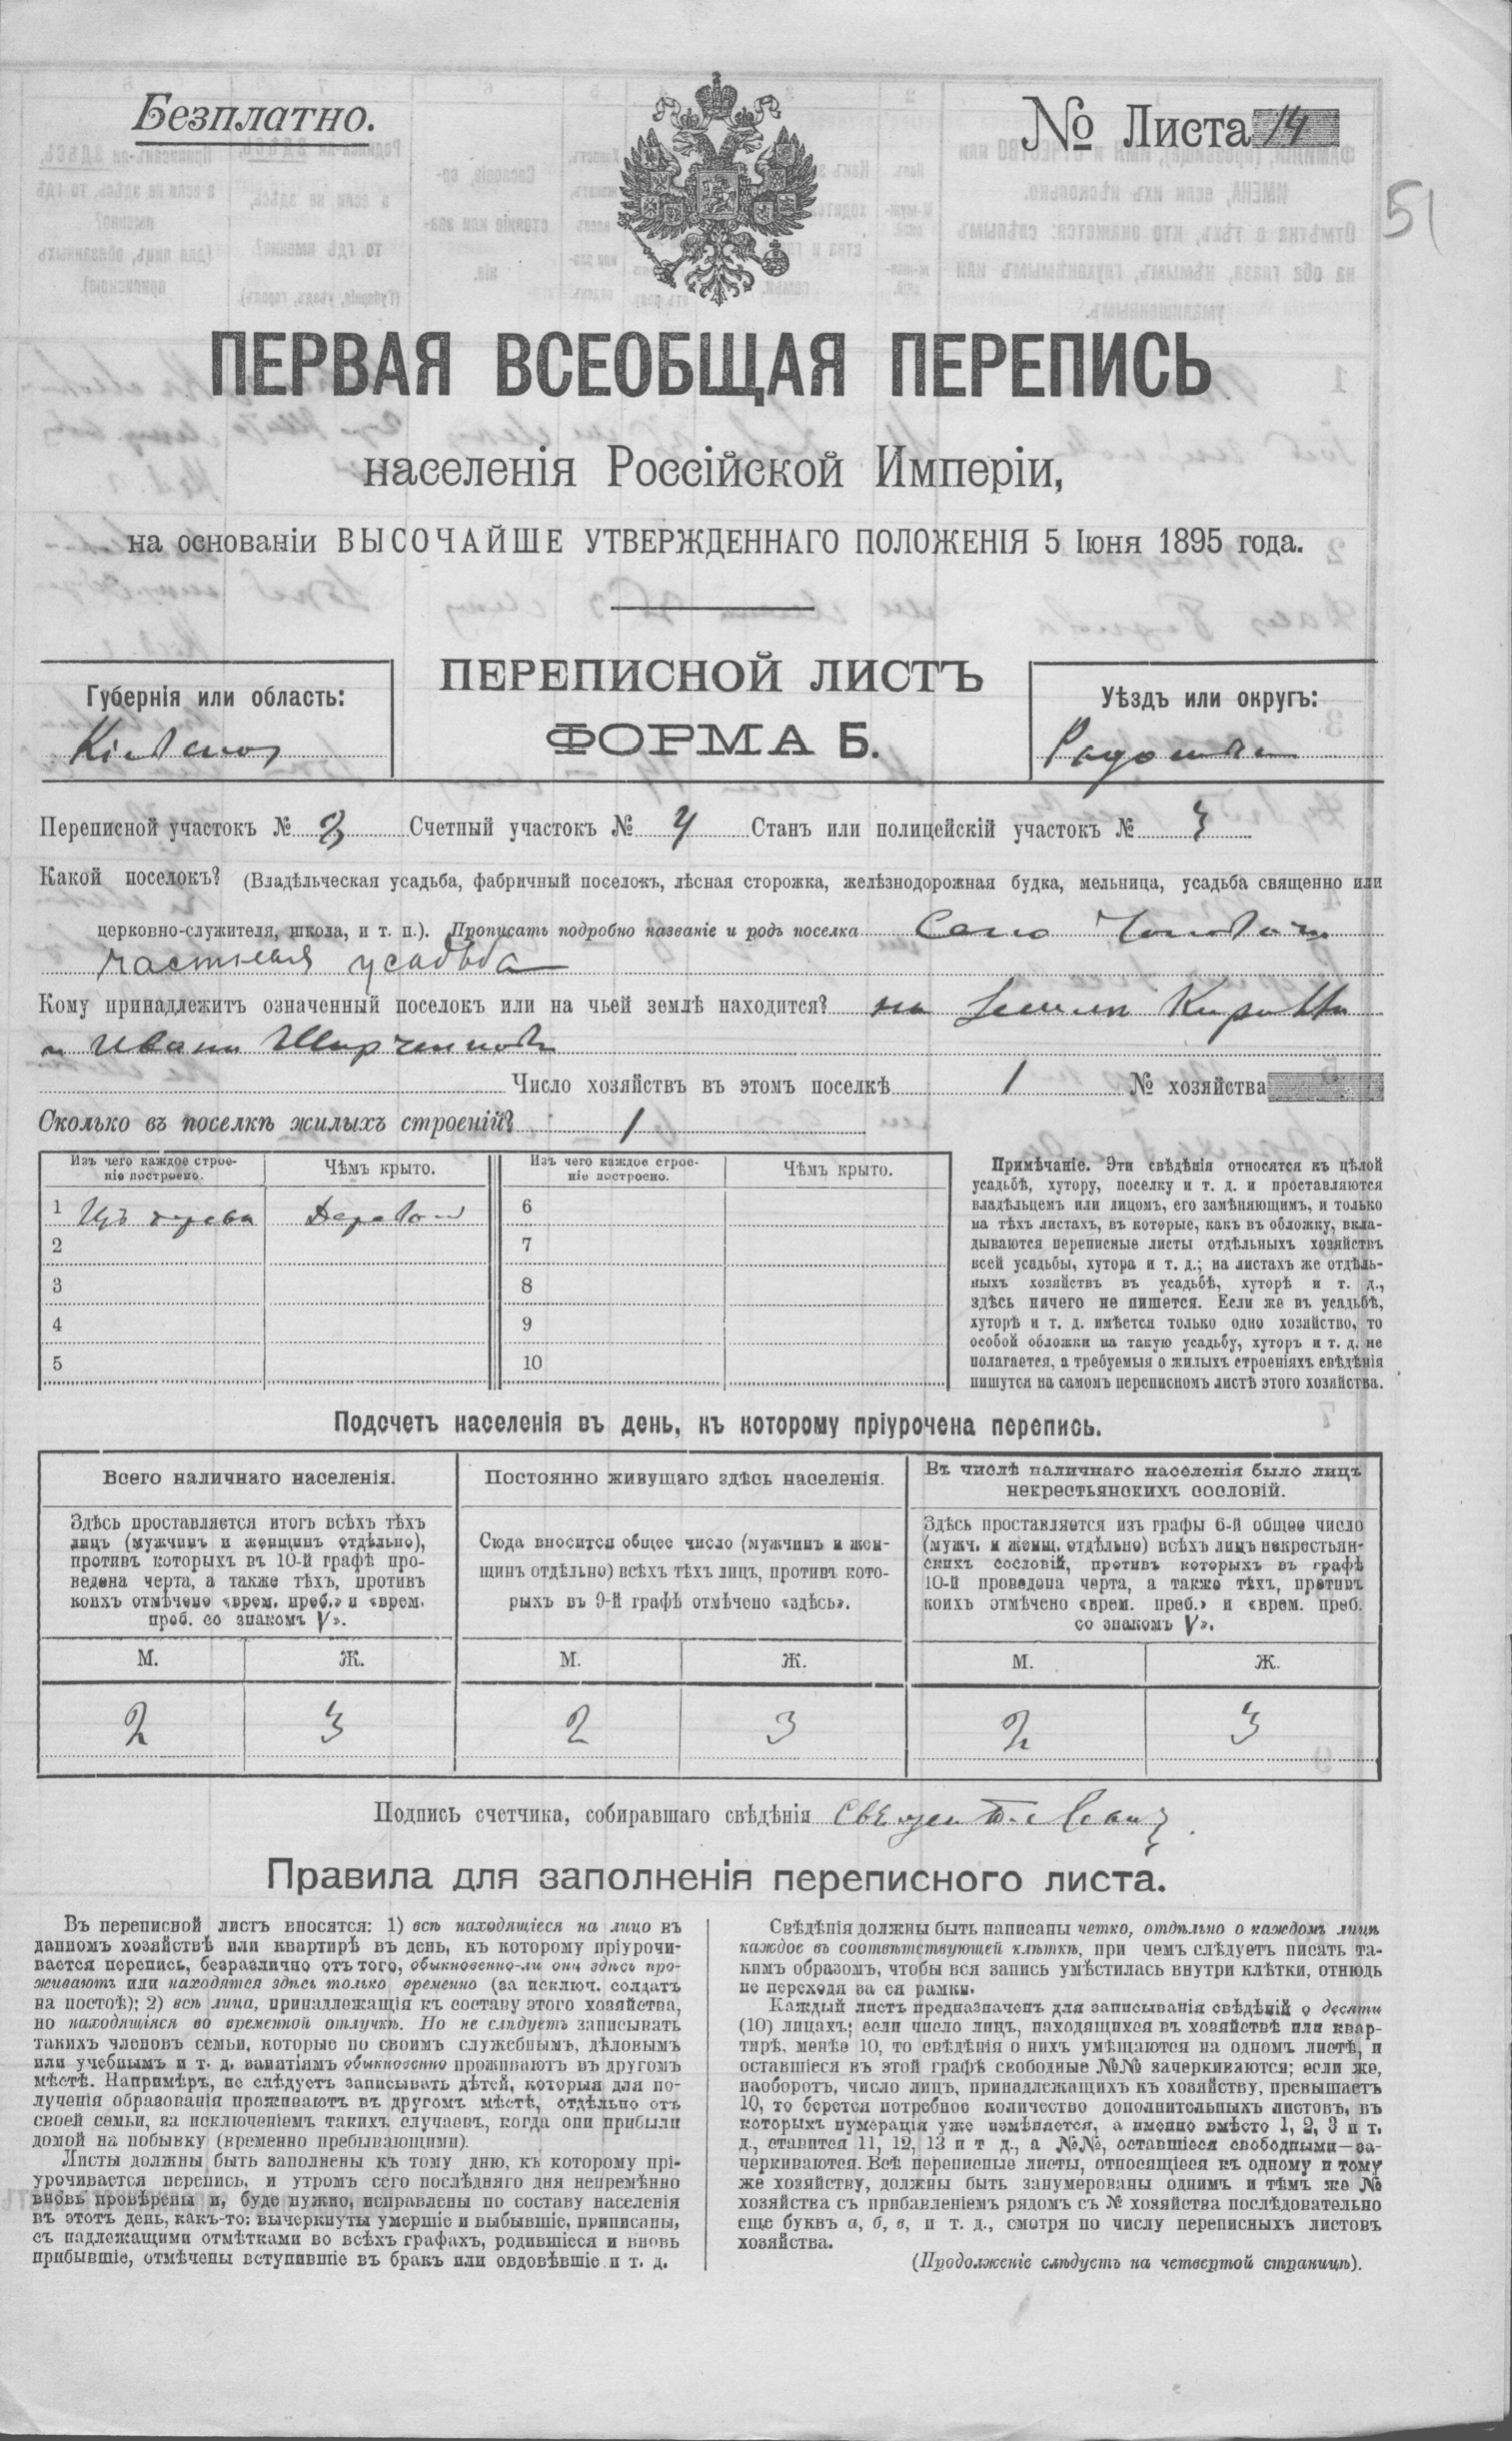 Безплатно.
№ Листа 14
51
ПЕРВАЯ ВСЕОБЩАЯ ПЕРЕПИСЬ
населенія Россійской Имперіи,
на основаніи ВЫСОЧАЙШЕ УТВЕРЖДЕННАГО ПОЛОЖЕНІЯ 5 Іюня 1895 года.
ПЕРЕПИСНОЙ ЛИСТЪ
ФОРМА Б.
Губернія или область:
Кіевской
Уѣздъ или округъ:
Радомысл
Переписной участокъ № Счетный участокъ № 4 Станъ или полицейскій участокъ № 3
Какой поселокъ? (Владѣльческая усадьба, фабричный поселокъ, лѣсная сторожка, желѣзнодорожная будка, мельница, усадьба священно или
церковно-служителя, школа, и т. п.). Прописать подробно названіе и родъ поселка Село
частная усадьба
Кому принадлежитъ означенный поселокъ или на чьей землѣ находится? на земли
и Ивана
Число хозяйствъ въ этомъ поселкѣ 1 № хозяйства
Сколько въ поселкѣ жилыхъ строеній? 1
Изъ чего каждое строе-
ніе построено. Чѣмъ крыто. Изъ чего каждое строе-
ніе построено. Чѣмъ крыто.
1 Изъ дерева Деревом 6
2 7
3 8
4 9
5 10
Примѣчаніе. Эти свѣдѣнія относятся къ цѣлой
усадьбѣ, хутору, поселку и т. д. и проставляются
владѣльцемъ или лицомъ, его замѣняющимъ, и только
на тѣхъ листахъ, въ которые, какъ въ обложку, вкла-
дываются переписные листы отдѣльныхъ хозяйствъ
всей усадьбы, хутора и т. д.; на листахъ же отдѣль-
ныхъ хозяйствъ въ усадьбѣ, хуторѣ и т. д.,
здѣсь ничего не пишется. Если же въ усадьбѣ,
хуторѣ и т. д. имѣется только одно хозяйство, то
особой обложки на такую усадьбу, хуторъ и т. д. не
полагается, а требуемыя о жилыхъ строеніяхъ свѣдѣнія
пишутся на самомъ переписномъ листѣ этого хозяйства.
Подсчетъ населенія въ день, къ которому пріурочена перепись.
Всего наличнаго населенія.
Здѣсь проставляется итогъ всѣхъ тѣхъ
лицъ (мужчинъ и женщинъ отдѣльно),
противъ которыхъ въ 10-й графѣ про-
ведена черта, а также тѣхъ, противъ
коихъ отмѣчено «врем. преб.» и «врем.
преб. со знакомъ V».
М. Ж.
2 3
Постоянно живущаго здѣсь населенія.
Сюда вносится общее число (мужчинъ и жен-
щинъ отдѣльно) всѣхъ тѣхъ лицъ, противъ кото-
рыхъ въ 9-й графѣ отмѣчено «здѣсь».
М. Ж.
2 3
Въ числѣ наличнаго населенія было лицъ
некрестьянскихъ сословій.
Здѣсь проставляется изъ графы 6-й общее число
(мужч. и женщ. отдѣльно) всѣхъ лицъ некрестьян-
скихъ сословій, противъ которыхъ въ графѣ
10-й проведена черта, а также тѣхъ, противъ
коихъ отмѣчено «врем. преб.» и «врем. преб.
со знакомъ V».
М. Ж.
2 3
Подпись счетчика, собиравшаго свѣдѣнія
Правила для заполненія переписного листа.
Въ переписной листъ вносятся: 1) всѣ находящіеся на лицо въ
данномъ хозяйствѣ или квартирѣ въ день, къ которому пріурочи-
вается перепись, безразлично отъ того, обыкновенно-ли они здѣсь про-
живаютъ или находятся здѣсь только временно (за исключ. солдатъ
на постоѣ); 2) всѣ лица, принадлежащія къ составу этого хозяйства,
но находящіеся во временной отлучкѣ. Но не слѣдуетъ записывать
такихъ членовъ семьи, которые по своимъ служебнымъ, дѣловымъ
или учебнымъ и т. д. занятіямъ обыкновенно проживаютъ въ другомъ
мѣстѣ. Напримѣръ, не слѣдуетъ записывать дѣтей, которыя для по-
лученія образованія проживаютъ въ другомъ мѣстѣ, отдѣльно отъ
своей семьи, за исключеніемъ такихъ случаевъ, когда они прибыли
домой на побывку (временно пребывающими).
Листы должны быть заполнены къ тому дню, къ которому прі-
урочивается перепись, и утромъ сего послѣдняго дня непремѣнно
вновь провѣрены и, буде нужно, исправлены по составу населенія
въ этотъ день, какъ-то: вычеркнуты умершіе и выбывшіе, приписаны,
съ надлежащими отмѣтками во всѣхъ графахъ, родившіеся и вновь
прибывшіе, отмѣчены вступившіе въ бракъ или овдовѣвшіе и т. д.
Свѣдѣнія должны быть написаны четко, отдѣльно о каждомъ лицѣ
каждое въ соотвѣтствующей клѣткѣ, при чемъ слѣдуетъ писать та-
кимъ образомъ, чтобы вся запись умѣстилась внутри клѣтки, отнюдь
не переходя за ея рамки.
Каждый листъ предназначенъ для записыванія свѣдѣній о десяти
(10) лицахъ; если число лицъ, находящихся въ хозяйствѣ или квар-
тирѣ, менѣе 10, то свѣдѣнія о нихъ умѣщаются на одномъ листѣ, и
оставшіеся въ этой графѣ свободные №№ зачеркиваются; если же,
наоборотъ, число лицъ, принадлежащихъ къ хозяйству, превышаетъ
10, то берется потребное количество дополнительныхъ листовъ, въ
которыхъ нумерація уже измѣняется, а именно вмѣсто 1, 2, 3 и т.
д., ставится 11, 12, 13 и т д., а №№, оставшіеся свободными—за-
черкиваются. Всѣ переписные листы, относящіеся къ одному и тому
же хозяйству, должны быть занумерованы однимъ и тѣмъ же №
хозяйства съ прибавленіемъ рядомъ съ № хозяйства послѣдовательно
еще буквъ а, б, в, и т. д., смотря по числу переписныхъ листовъ
хозяйства.
(Продолженіе слѣдуетъ на четвертой страницѣ).